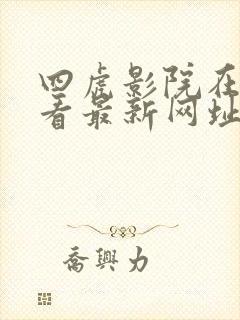 四虎影院在
看最新网址
喬興力